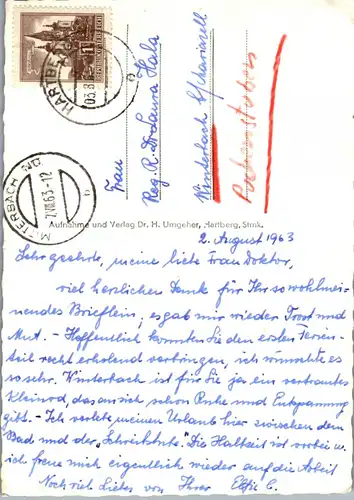 HARTBERG
03.8
REPUBLIK ÖSTERREICH
MITTERBACH NÖ.
7.VIII.63-12
b
Frau
Reg. R. Dr. Laura Hala
Winterbach b/Mariazell
Puchenstuben
Aufnahme und Verlag Dr. H. Umgeher, Hartberg, Stmk.
2. August 1963
Sehr geehrte, meine liebe Frau Doktor,
viel herzlichen Dank für Ihr so wohlmei-
nendes Brieflein, es gab mir wieder Trost und
Mut. - Hoffentlich konnten Sie den ersten Ferien-
teil recht erholend verbringen, ich wünschte es
so sehr. Winterbach ist für Sie ja ein vertrautes
Kleinod, das an sich schon Ruhe und Entspannung
gibt. - Ich verlebe meinen Urlaub hier zwischen dem
Bad und der „Schreibstube". Die Halbzeit ist vorbei u.
ich freue mich eigentlich wieder auf die Arbeit
Noch viel Liebes von Ihrer Elfie C.